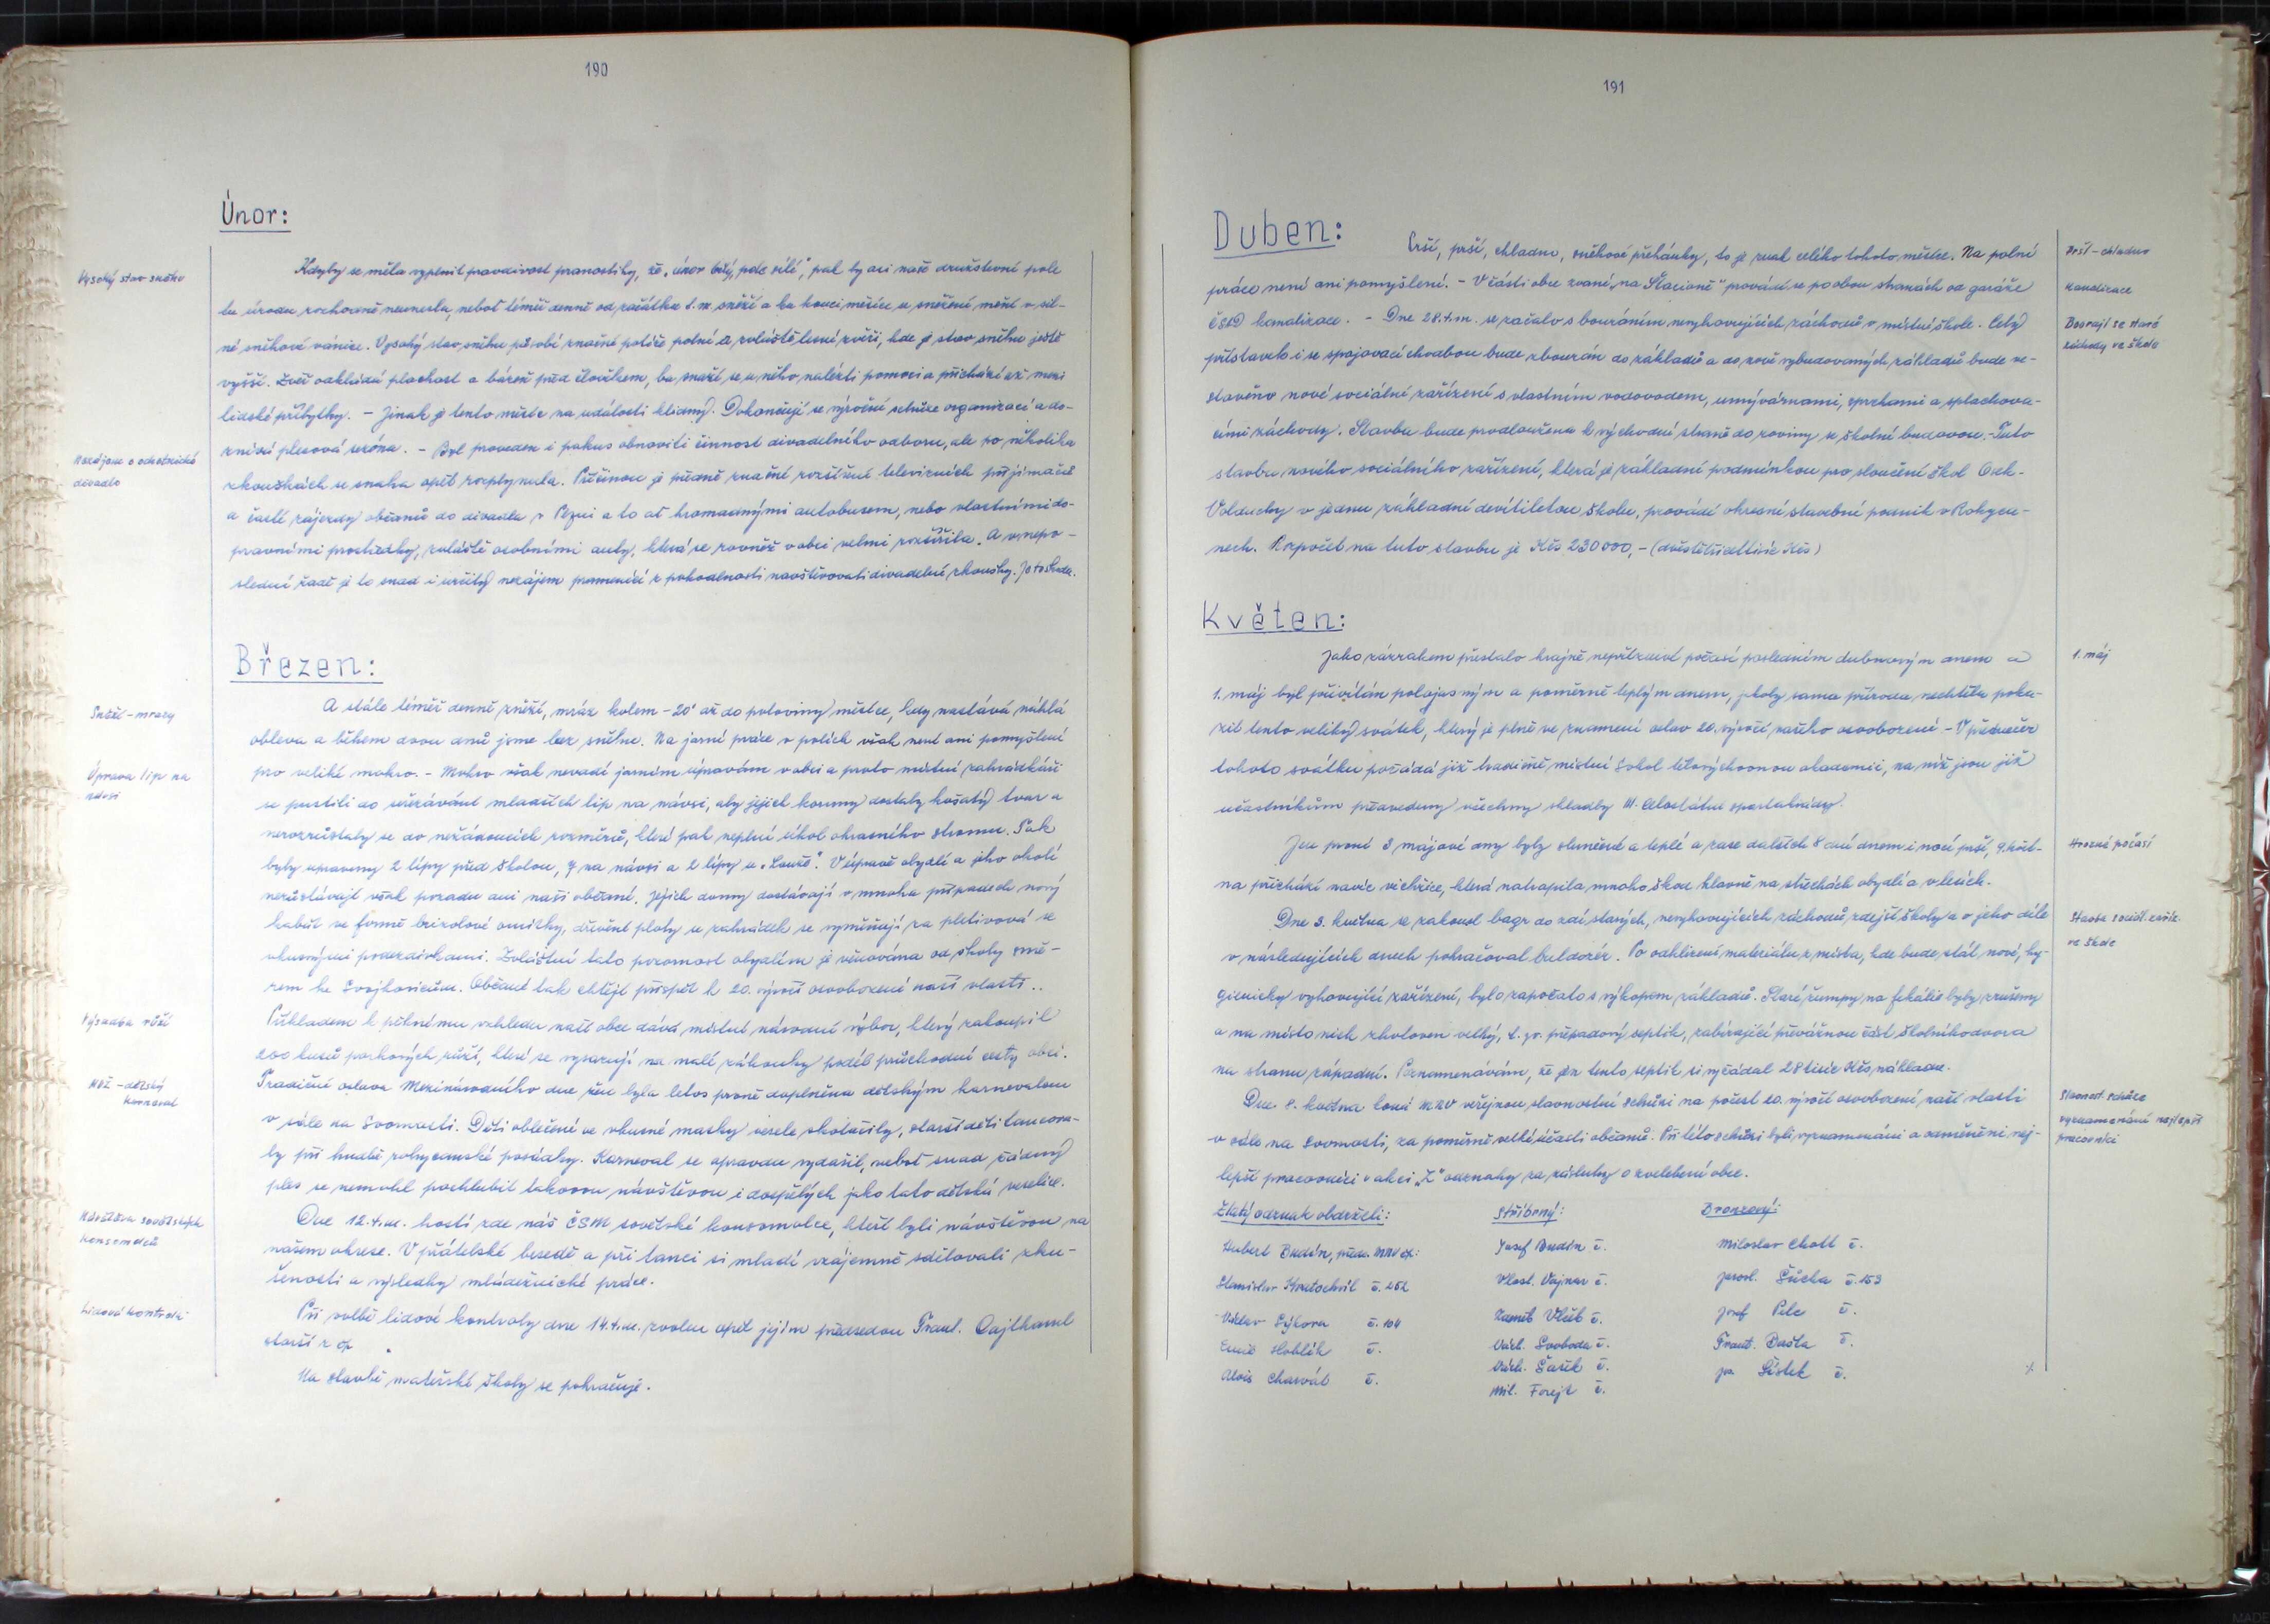 190
Únor:
Vysoký stav sněhu
Kdyby se měla vyplnit pravdivost pranostiky, že „únor bílý, pole sílí", pak by asi naše družstevní pole
tu úrodu rozhodně neunesla, neboť téměř denně od začátku t.m. sněží a ke konci měsíce se sněžení mění v sil-
né sněhové vánice. Vysoký stav sněhu působí značné potíže polní a zvláště lesní zvěři, kde je stav sněhu ještě
vyšší. Zvěř odkládá plachost a bázeň před člověkem, ba snaží se u něho nalézti pomoci a přichází až mezi
lidské příbytky. - Jinak je tento měsíc na události klidný. Dokončují se výroční schůze organizací a do-
znívá plesová sezóna. - Byl proveden i pokus obnoviti činnost divadelního odboru, ale po několika
Nezájem o ochotnické
divadlo
zkouškách se snaha opět rozplynula. Příčinou je předně značné rozšíření televizních přijímačů
a časté zájezdy občanů do divadla v Plzni a to ať hromadnými autobusem, nebo vlastními do-
pravními prostředky, zvláště osobními auty, která se rovněž v obci velmi rozšířila. A v nepo-
slední řadě je to snad i určitý nezájem pramenící z pohodlnosti navštěvovati divadelní zkoušky. Je to škoda.
Březen:
Sněží - mrazy
A stále téměř denně sněží, mráz kolem -20° až do poloviny měsíce, kdy nastává náhlá
obleva a během dvou dnů jsme bez sněhu. Na jarní práce v polích však není ani pomyšlení
Úprava lip na
návsi
pro veliké mokro. - Mokro však nevadí jarním úpravám v obci a proto místní zahrádkáři
se pustili do seřezávání mladších lip na návsi, aby jejich koruny dostaly košatý tvar a
nerozrůstaly se do nežádoucích rozměrů, které pak neplní úkol okrasného stromu. Tak
byly upraveny 2 lípy před školou, 7 na návsi a 2 lípy u „Louže". V úpravě obydlí a jeho okolí
nezůstávají však pozadu ani naši občané. Jejich domy dostávají v mnoha případech nový
kabát ve formě brizolové omítky, dřevěné ploty u zahrádek se vyměňují za pletivové se
vkusnými podezdívkami. Zvláštní tato pozornost obydlím je věnována od školy smě-
rem ke Svojkovicům. Občané tak chtějí přispět k 20. výročí osvobození naší vlasti..
Výsadba růží
Příkladem k pěknému vzhledu naší obce dává místní národní výbor, který zakoupil
200 kusů parkových růží, které se vysazují na malé záhonky podél průchodní cesty obcí.
MDŽ - dětský
karneval
Tradiční oslava Mezinárodního dne žen byla letos prvně doplněna dětským karnevalem
v sále na Svornosti. Děti oblečené ve vkusné masky vesele skotačily, starší děti tancova-
ly při hudbě rokycanské posádky. Karneval se opravdu vydařil, neboť snad žádný
ples se nemohl pochlubit takovou návštěvou i dospělých jako tato dětská veselice.
Návštěva sovětských
komsomolců
Dne 12. t.m. hostí zde náš ČSM sovětské komsomolce, kteří byli návštěvou na
našem okrese. V přátelské besedě a při tanci si mladí vzájemně sdělovali zku-
šenosti a výsledky mládežnické práce.
Lidová kontrola
Při volbě lidové kontroly dne 14. t.m. zvolen opět jejím předsedou Frant. Cajthaml
starší z čp .
Na stavbě mateřské školy se pokračuje.
191
Duben:
Prší - chladno
Prší, prší, chladno, sněhové přeháňky, to je znak celého tohoto měsíce. Na polní
Kanalizace
práce není ani pomyšlení. - V části obce zvané „na Štacioně" provádí se po obou stranách od garáže
Bourají se staré
záchody ve škole
ČSAD kanalizace. - Dne 28. t.m. se začalo s bouráním nevyhovujících záchodů v místní škole. Celý
přístavek i se spojovací chodbou bude zbourán do základů a do nově vybudovaných základů bude ve-
stavěno nové sociální zařízení s vlastním vodovodem, umývárnami, sprchami a splachova-
cími záchody. Stavba bude prodloužena k východní straně do roviny se školní budovou. - Tuto
stavbu nového sociálního zařízení, která je základní podmínkou pro sloučení škol Osek-
Volduchy v jednu základní devítiletou školu, provádí okresní stavební podnik v Rokyca-
nech. Rozpočet na tuto stavbu je Kčs 230 000,- (dvěstětřicettisíc Kčs)
Květen:
1. máj
Jako zázrakem přestalo krajně nepříznivé počasí posledním dubnovým dnem a
1. máj byl přivítán polojasným a poměrně teplým dnem, jakoby sama příroda nechtěla poka-
zit tento veliký svátek, který je plně ve znamení oslav 20. výročí našeho osvobození - V předvečer
tohoto svátku pořádá již tradičně místní Sokol tělovýchovnou akademii, na níž jsou již
účastníkům předvedeny všechny skladby III. celostátní spartakiády.
Hrozné počasí
Jen první 3 májové dny byly slunečné a teplé a zase dalších 8 dní dnem i nocí prší, 9. květ-
na přichází navíc vichřice, která natropila mnoho škod hlavně na střechách obydlí a v lesích.
Stavba sociál. zaříz.
ve škole
Dne 3. května se zakousl bagr do zdí starých, nevyhovujících záchodů zdejší školy a v jeho díle
v následujících dnech pokračoval buldozér. Po odklizení materiálu z místa, kde bude stát nové, hy-
gienicky vyhovující zařízení, bylo započato s výkopem základů. Staré žumpy na fekálie byly zrušeny
a na místo nich zhotoven velký, t. zv. přepadový septik, zabírající převážnou část školního dvora
na stranu západní. Poznamenávám, že jen tento septik si vyžádal 28 tisíc Kčs nákladu.
Slavnost. schůze
vyznamenání nejlepší
pracovníci
Dne 8. května koná MNV veřejnou slavnostní schůzi na počest 20. výročí osvobození naší vlasti
v sále na Svornosti, za poměrně velké účasti občanů. Při této schůzi byli vyznamenáni a odměněni nej-
lepší pracovníci v akci „Z" odznaky za zásluhy o zvelebení obce.
Zlatý odznak obdrželi: Stříbrný: Bronzový:
Hubert Budín, předs. MNV čp: Josef Budín č. Miloslav Chott č.
Stanislav Kratochvíl č. 252 Vlast. Vajner č. Jarosl. Sůcha č. 153
Václav Sýkora č. 104 Zdeněk Vlček č. Josef Pelc č.
Emil Hoblík č. Václ. Svoboda č. Frant. Bašta č.
Alois Charvát č. Václ. Šašek č. Jar. Šístek č.
Mil. Forejt č.